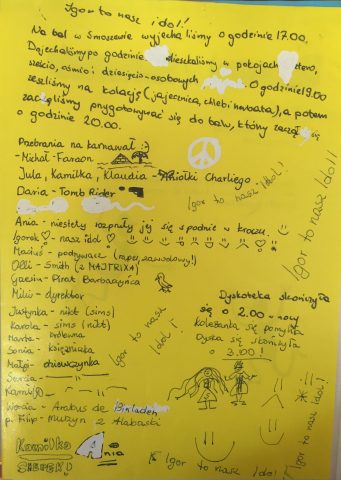 Igor to nasz idol!
Na bal w Smoszewie wyjechaliśmy o godzinie 17.00.
Dojechaliśmy po godzinie mieszkaliśmy w pokojach cztero,
sześcio, ośmio i dziesięcio-osobowych O godzinie 19.00
zeszliśmy na kolację (jajecznica, chleb i herbata), a potem
zaczęliśmy przygotowywać się do balu, który zaczął się
o godzinie 20.00.
Przebrania na karnawał :)
- Michał - Faraon
Jula, Kamilka, Klaudia - Aniołki Charliego
Daria - Tomb Rider
Igor to nasz Idol!
Igor to nasz Idol!!
Ania - niestety rozpruły jej się spodnie w kroczu.
Igorek ♡ - nasz idol ♡
Matiuś - podrywacz (raper, zawodowy!)
Olli - Smith (z MATRIXA)
- Pirat Barbarzyńca
Milu - dyrektor
Justynka - nikt (sims)
Karola - sims (nikt)
Marta - Próbówna
Sonia - księżniczka
Małgo - dziewczynka
Igor to nasz Idol!
Dyskoteka skończyła
się o 2.00 w nocy
Koleżanka się pomyliła
Dyska się skończyła
o 3.00!
- Arabus de Binladen
p. Filip - Murzyn z Alabaski
Kamilka
Ania
Igor to nasz Idol!
Igor to nasz Idol!